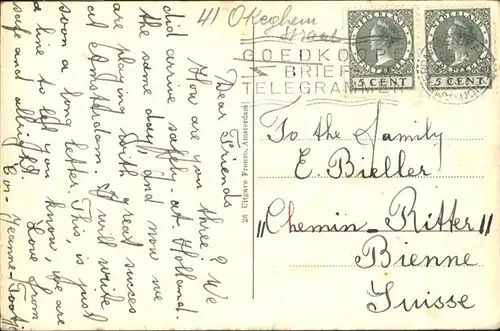 41 Okeghem
straat
GOEDKOOPE
BRIEF
TELEGRAMMEN
NEDERLAND
5 CENT
NEDERLAND
5 CENT
Dear Friends
How are you three? We
did arrive safely at Holland.
the same day, and now we
are playing with great succes
at Amsterdam. I will write
soon a long letter. This, is just
a line to let you know, we are
safe and allright. Love from
Cor - Jeanne -
26 Uitgave Frenzo, Amsterdam
To the family
E. Bieller
"Chemin-Ritter"
Bienne
Suisse